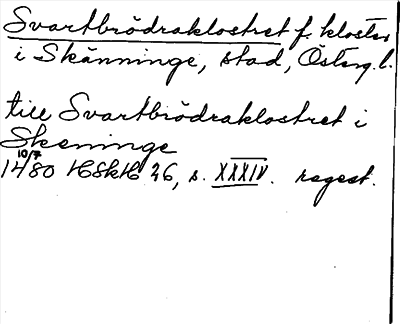 Svartbrödraklostret f. kloster
i Skänninge, stad, Österg.l.
till Svartbrödraklostret i
Skeninge
14 10/7 80 HSkH 26, s. XXXIV. regest.